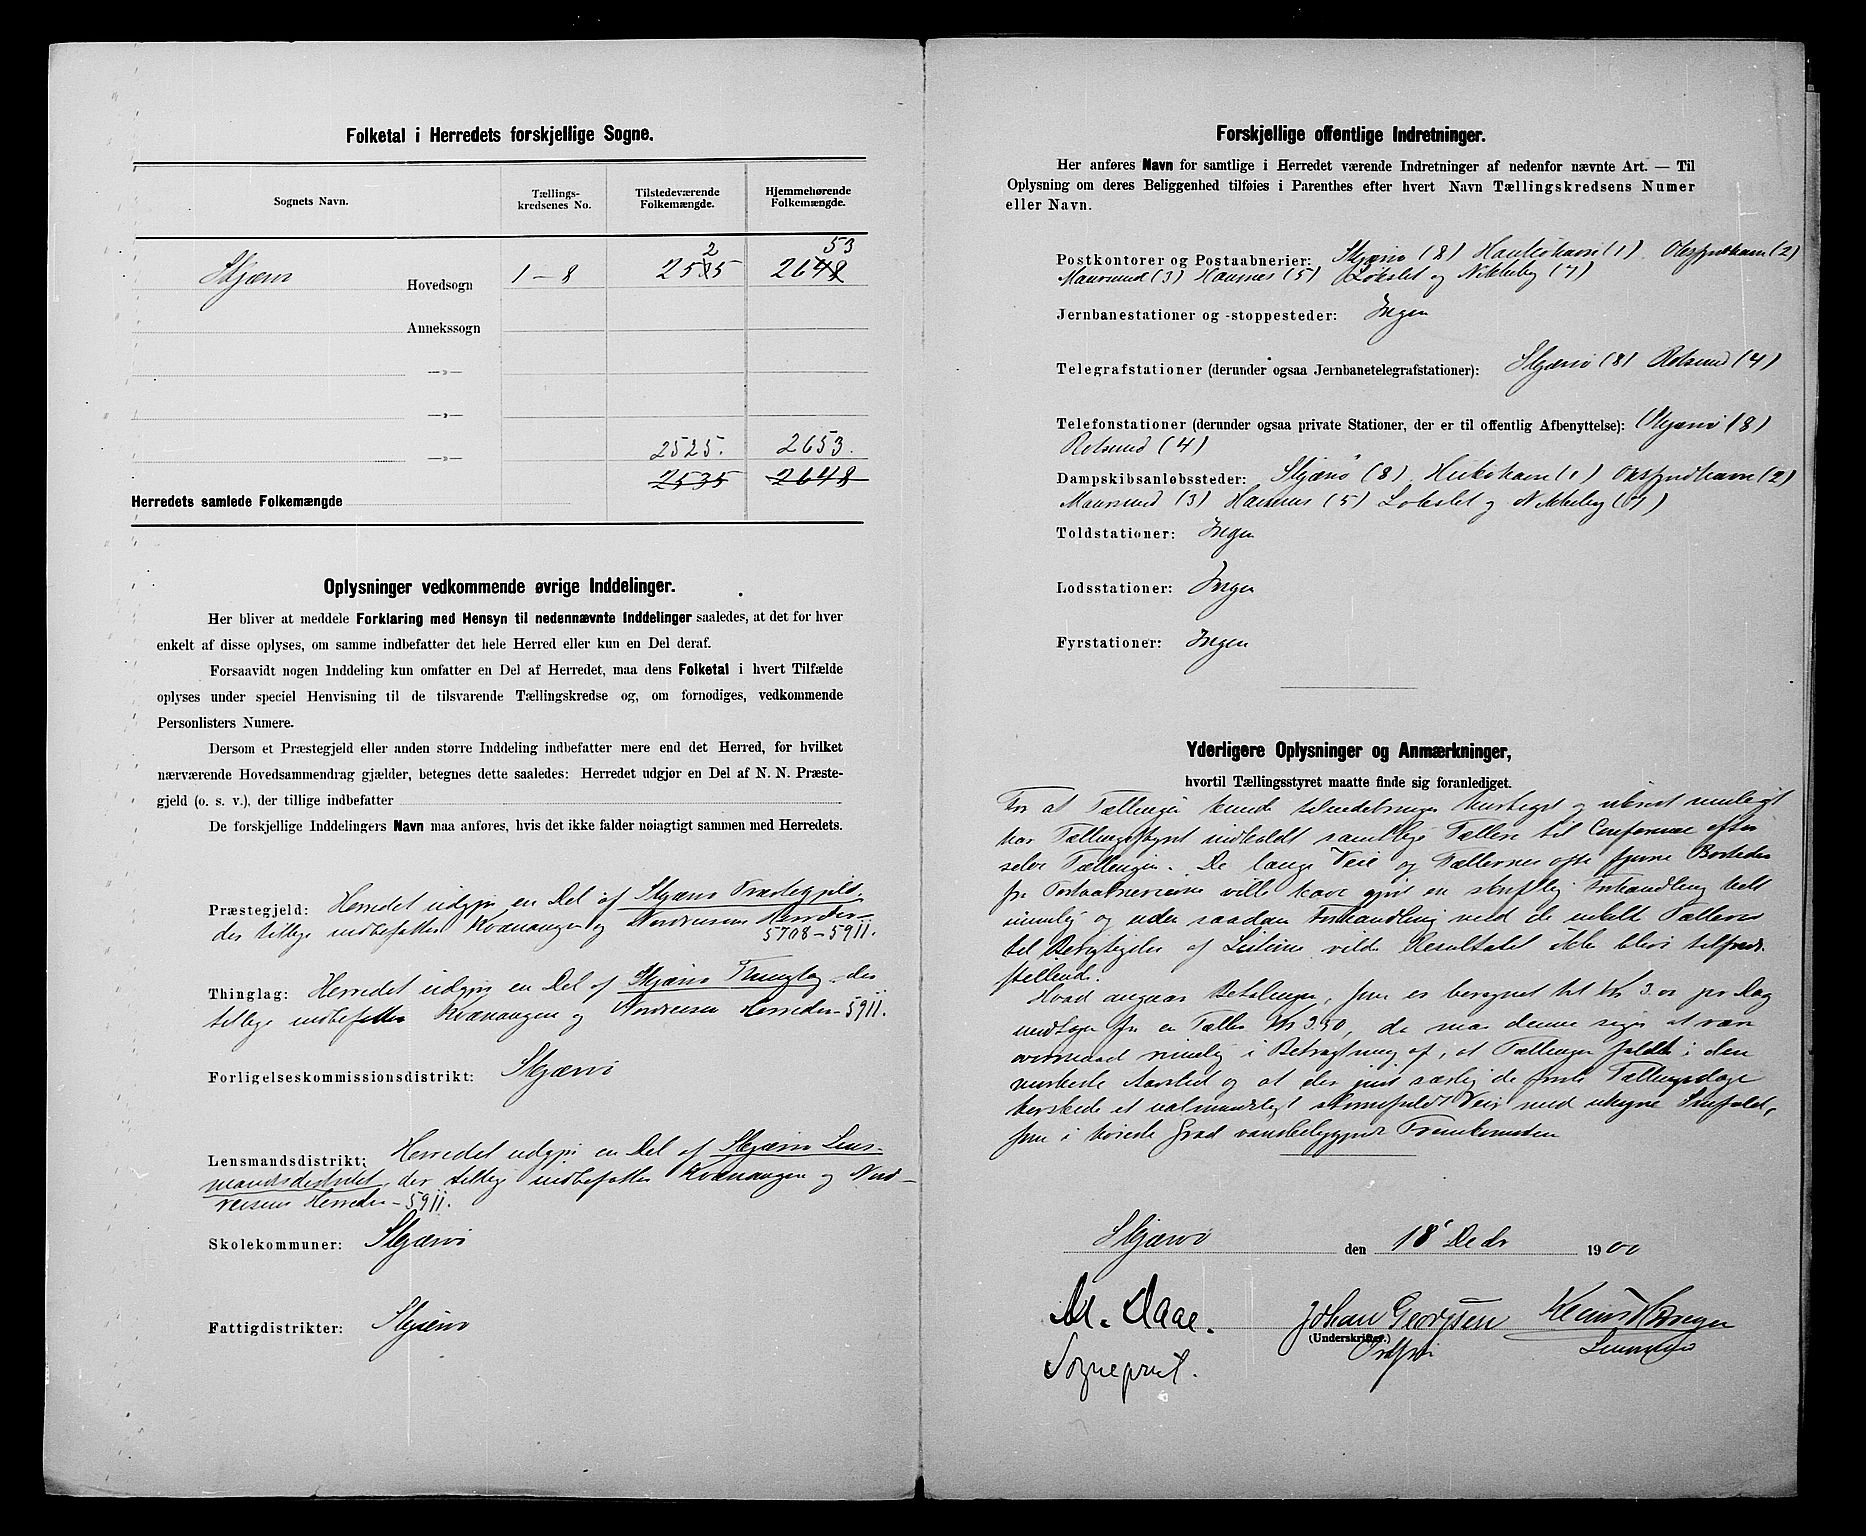 Folketal i Herredets forskjellige Sogne.
Sognets Navn.
Tællings-
kredsenes No.
Tilstedeværende
Folkemængde.
Hjemmehørende
Folkemængde.
2 53
Skjærvø Hovedsogn 1-8 2535 2648
Annekssogn
—»—
—»—
—»— 2525. 2653.
2535 2648
Herredets samlede Folkemængde
Oplysninger vedkommende øvrige Inddelinger.
Her bliver at meddele Forklaring med Hensyn til nedennævnte Inddelinger saaledes, at det for hver
enkelt af disse oplyses, om samme indbefatter det hele Herred eller kun en Del deraf.
Forsaavidt nogen Inddeling kun omfatter en Del af Herredet, maa dens Folketal i hvert Tilfælde
oplyses under speciel Henvisning til de tilsvarende Tællingskredse og, om fornødiges, vedkommende
Personlisters Numere.
Dersom et Præstegjeld eller anden større Inddeling indbefatter mere end det Herred, for hvilket
nærværende Hovedsammendrag gjælder, betegnes dette saaledes: Herredet udgjør en Del af N. N. Præste-
gjeld (o. s. v.), der tillige indbefatter
De forskjellige Inddelingers Navn maa anføres, hvis det ikke falder nøiagtigt sammen med Herredets.
Præstegjeld: Herredet udgjør en Del af Skjærvø Præstegjeld,
der tillige indbefatter Kvænangen og Nordreisen Herreder-
5708-5911.
Thinglag: Herredet udgjør en Del af Skjærvø Thinglag der
tillige indbefatter Kvænangen og Nordreisen Herreder-5911.
Forligelseskommissionsdistrikt: Skjærvø
Lensmandsdistrikt: Herredet udgjør en Del af Skjærvø Lens-
mandsdistrikt, der tillige indbefatter Kvænangen og Nord-
reisens Herreder-5911.
Skolekommuner: Skjærvø
Fattigdistrikter: Skjærvø
Forskjellige offentlige Indretninger.
Her anføres Navn for samtlige i Herredet værende Indretninger af nedenfor nævnte Art. — Til
Oplysning om deres Beliggenhed tilføies i Parenthes efter hvert Navn Tællingskredsens Numer
eller Navn.
Postkontorer og Postaabnerier: Skjærvø (8) (1), Oksfjordhavn (2)
Maursund (3) Hamnes (5) Løkslet og Nikkeby (7)
Jernbanestationer og -stoppesteder: Ingen
Telegrafstationer (derunder ogsaa Jernbanetelegrafstationer): Skjærvø (8) Rotsund (4)
Telefonstationer (derunder ogsaa private Stationer, der er til offentlig Afbenyttelse): Skjærvø (8)
Rotsund (4)
Dampskibsanløbssteder: Skjærvø (8), (1) Oksfjordhavn (2)
Maursund (3) Hamnes (5) Løkslet og Nikkeby (7)
Toldstationer: Ingen
Lodsstationer: Ingen
Fyrstationer: Ingen
Yderligere Oplysninger og Anmærkninger,
hvortil Tællingsstyret maatte finde sig foranlediget.
For at Tællingen kunde tilendebringes hurtigst og sikrest muligt
har Tællingsstyret indkaldt samtlige Tællere til Conference efter
selve Tællingen. De lange Veie og Tællernes ofte fjerne Bosteder
fra Postaabnerierne vilde have gjort en skriftlig Forhandling helt
umulig og uden saadan Forhandling med de enkelte Tællere
til Berigtigelse af Listerne vilde Resultatet ikke blevet tilfreds-
stillende.
Hvad angaar Betalingen, som er beregnet til Kr 3.00 pr Dag
undtagen for en Tæller Kr 3.50, da maa denne siges at være
overmaade rimelig i Betragtning af, at Tællingen faldt i den
mørkeste Aarstid og at der just særlig de første Tællingsdage
herskede et ualmindeligt stormfuldt Veir med uhyre Snefald,
som i høieste Grad vanskeliggjorde Fremkomsten
Skjærvø den 18' Decbr 1900
M. Aaae. Johan Georgsen
(Underskrifter.)
Sogneprest. Ordfører Lensmand